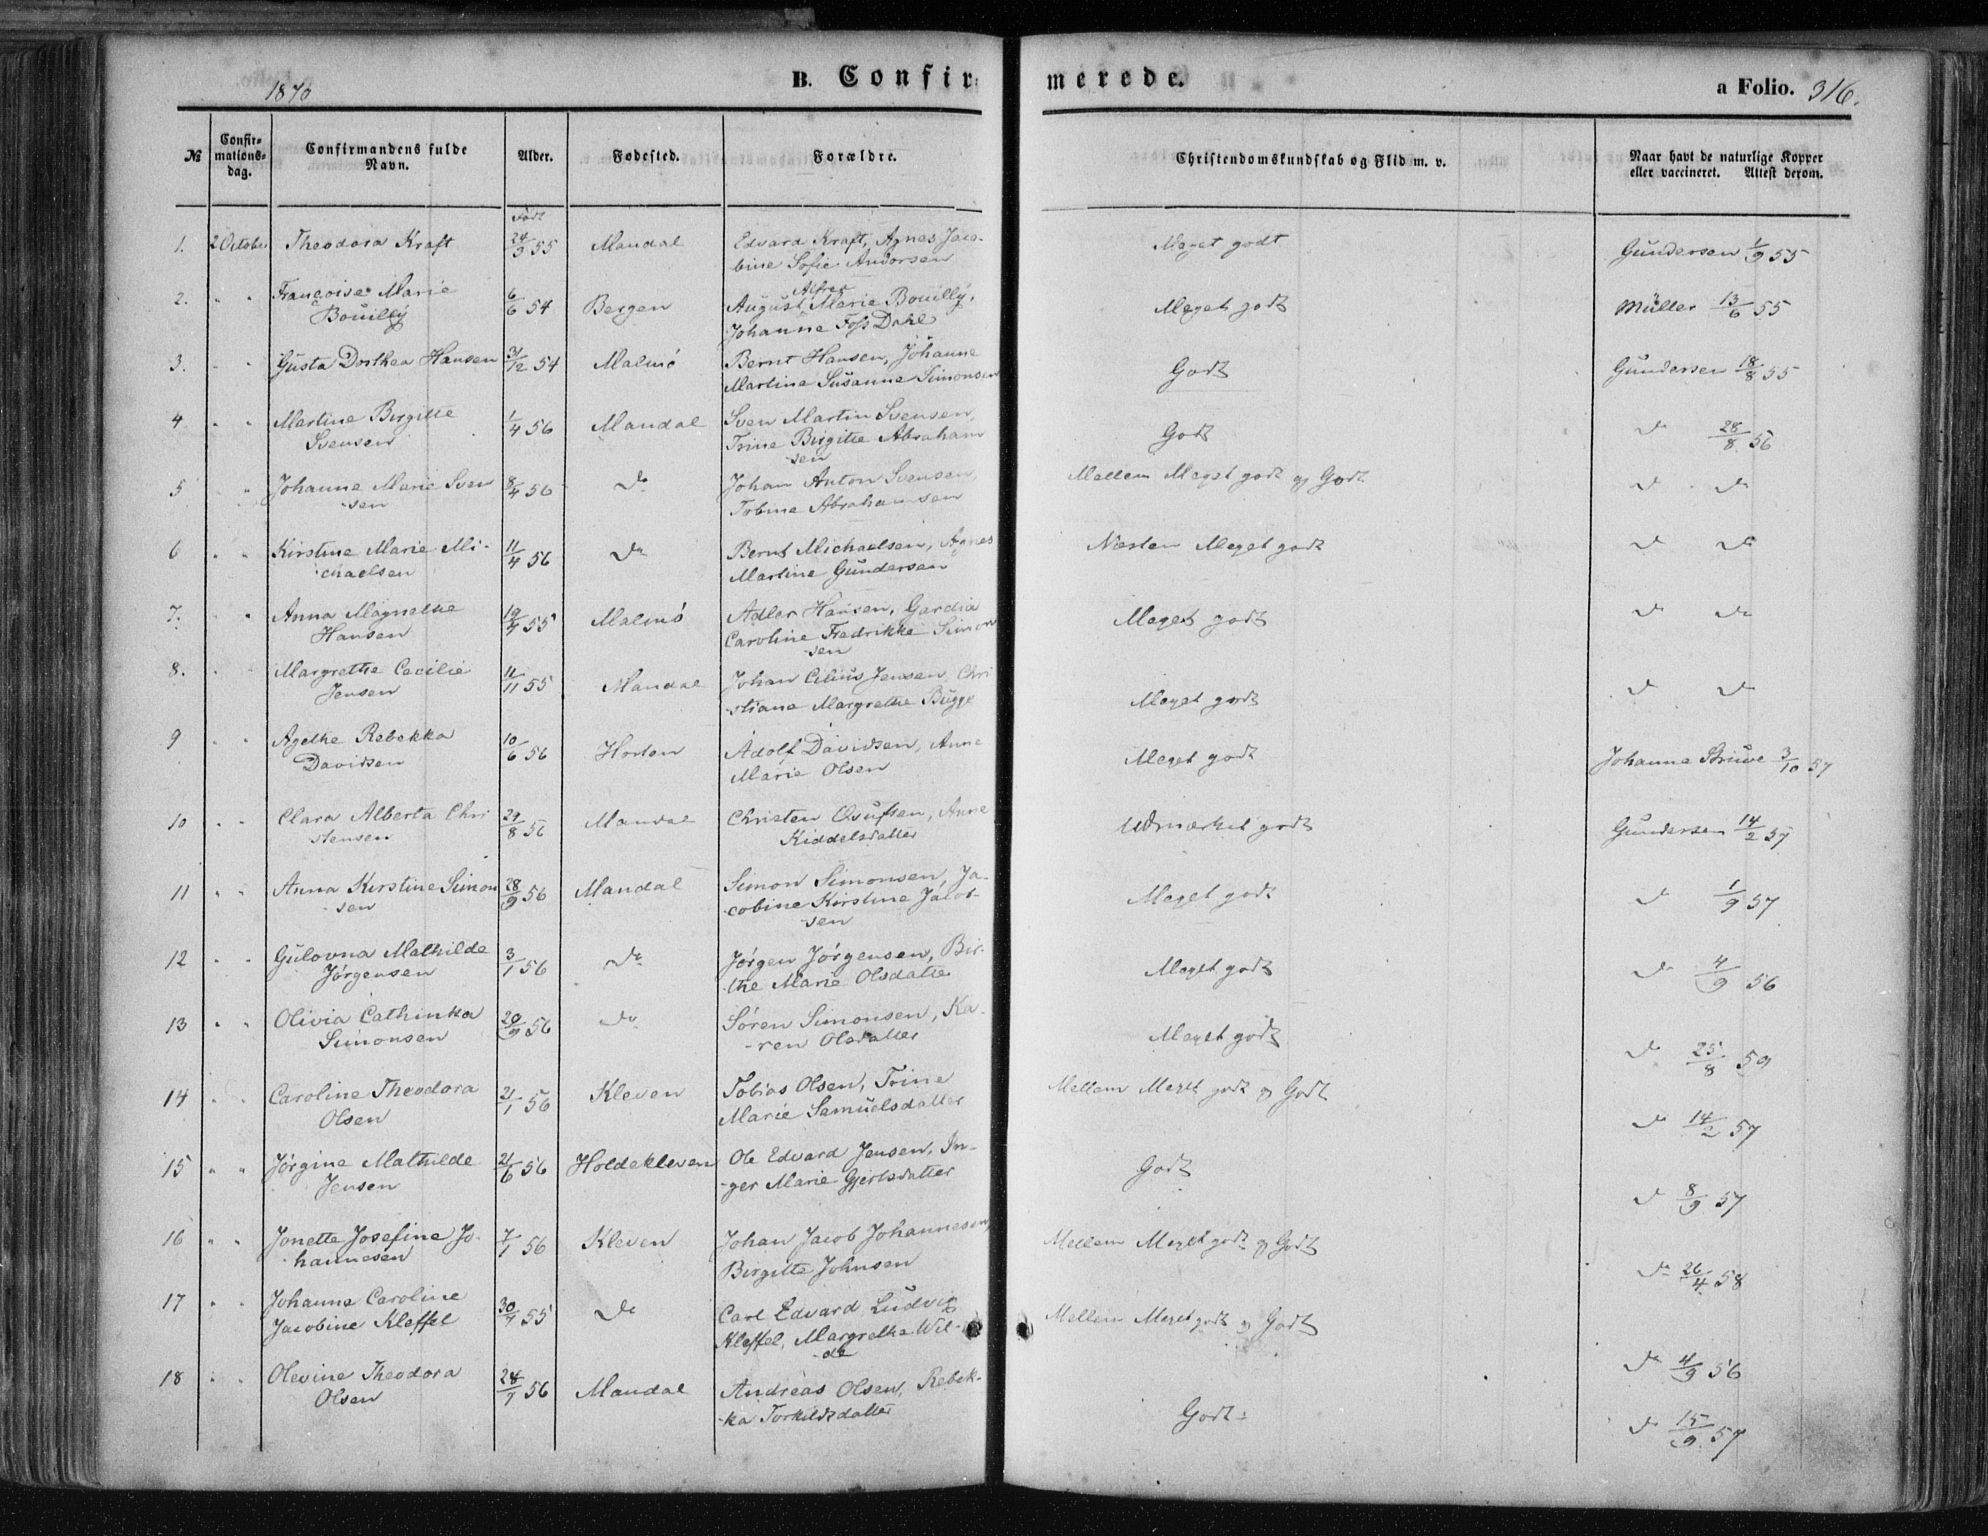 1870 B. Confirmerede. a Folio. 316.
№ Confirmationsdag. Confirmandens fulde Navn. Alder. Fødested. Forældre. Christendomskundskab og Flid m. v. Naar havt de naturlige Kopper eller vaccineret. Attest derom.
Født
1. 2 October Theodora Kraft 24/3 55 Mandal Edvard Kraft, Agnes Jaco- Meget godt Gundersen 1/9 55
bine Sofie Andorsen
2. " " Françoise Marie 6/6 54 Bergen August Alfred Marie Bouilly, Meget godt Müller 13/6 55
Bouilly Johanne Foss Dahl
3. " " Gusta Dorthea Hansen 31/12 54 Malmø Bernt Hansen, Johanne Godt Gundersen 18/8 55
Martine Susanne Simonsen
4 " " Martine Birgitte 1/4 56 Mandal Sven Martin Svensen, Godt do 28/8 56
Svensen Trine Birgitte Abraham
-sen
5 " Johanne Marie Sven 8/4 56 do Johan Anton Svensen, Mellem Meget godt og Godt do do
-sen Tobine Abrahamsen
6 " " Kirstine Marie Mi- 11/4 56 do Bernt Michaelsen, Agnes Næsten Meget godt do do
chaelsen Martine Gundersen
7. " " Anna Magnethe 19/4 55 Malmø Adler Hansen, Gardia Meget godt do do
Hansen Caroline Fredrikke Simon
-sen
8. " " Margrethe Cecilie 11/11 55 Mandal Johan Jensen, Chri Meget godt do do
Jensen stiane Margrethe Bugge
9 " " Agethe Rebekka 10/6 56 Horten Adolf Davidsen, Anne Meget godt Johanne Struwe 3/10 57
Davidsen Marie Olsen
10 " " Clara Alberta Chri 29/8 56 Mandal Christen Osufsen, Anne Udmærket godt Gundersen 14/2 57
stensen Kiddelsdatter
11 " " Anna Kirstine Simon 28/9 56 Mandal Simon Simonsen, Ja- Meget godt do 1/9 57
-sen cobine Kirstine Jakob-
-sen
12 " " Gulovna Mathilde 3/1 56 do Jørgen Jørgensen, Bir- Meget godt do 4/9 56
Jørgensen the Marie Olsdatter
13 " " Olivia Cathinka 20/9 56 do Søren Simonsen, Ka- Meget godt do 25/8 59
Simonsen -ren Olsdatter
14 " " Caroline Theodora 21/1 56 Kleven Tobias Olsen, Trine Mellem Meget godt og Godt do 14/2 57
Olsen Marie Samuelsdatter
15 " " Jørgine Mathilde 21/6 56 Holdekleven Ole Edvard Jensen, In- Godt do 8/9 57
Jensen -ger Marie Gjertsdatter
16 " " Jonette Josefine Jo- 7/1 56 Kleven Johan Jacob Johannesen, Mellem Meget godt og Godt do 26/4 58
hannesen Birgitte Johnsen
17 " " Johanne Caroline 30/7 55 do Carl Edvard Ludvig Mellem Meget godt og Godt do 4/9 56
Jacobine Kleffel Kleffel, Margrethe Wil-
-de
18 " " Olevine Theodora 24/7 56 Mandal Andreas Olsen, Rebek- Godt do 15/9 57
Olsen -ka Torkildsdatter